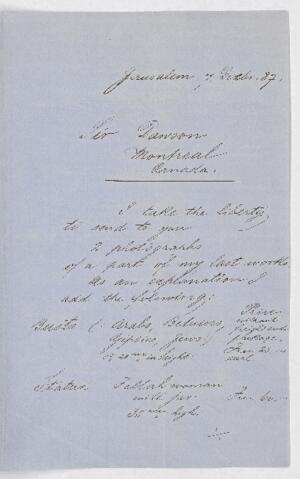 Jerusalem 7 Decbr. 87.
Sir Dawson
Montreal
Canada.
I take the liberty
to send to you
2 photographs
of a part of my last works
As an explanation I
add the following:
Busts (: Arabs, Beduins, Price
Gipsies, Jews:) without
freight and
package.
in hight.
Statue. Fallah woman
with
high.